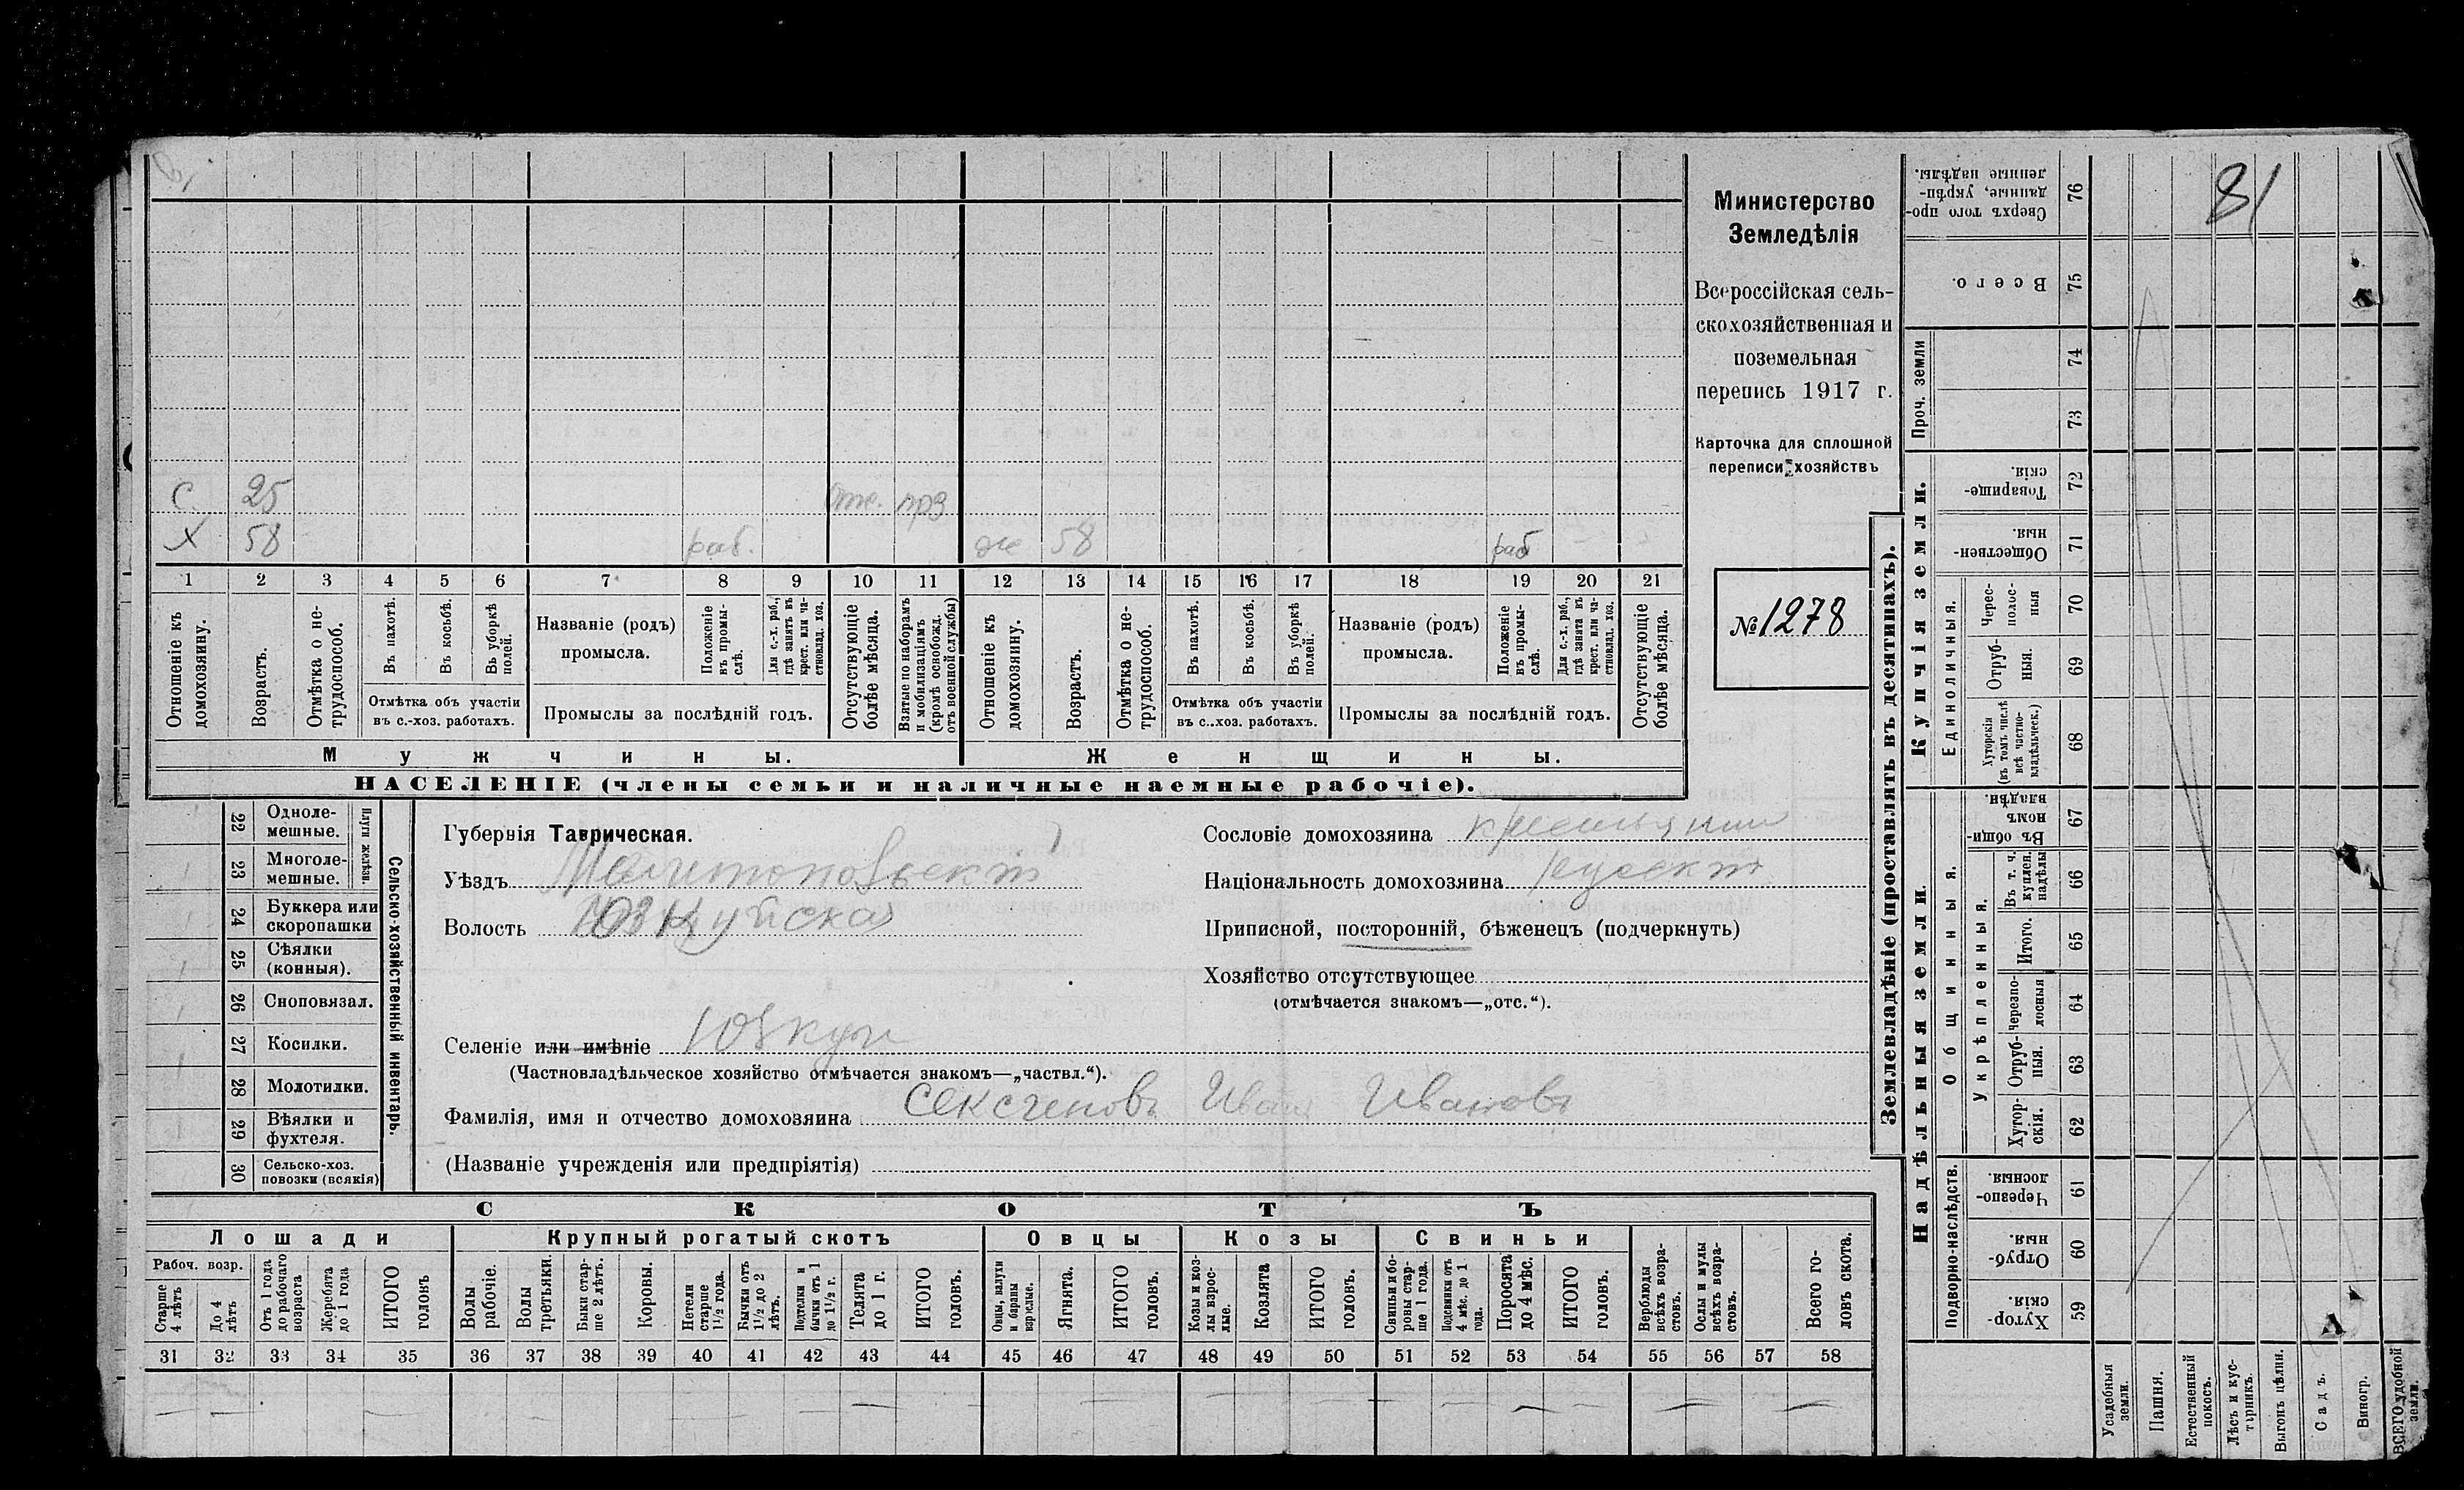 81
Министерство
Земледѣлія
Всероссійская сель-
скохозяйственная и
поземельная
перепись 1917 г.
Карточка для сплошной
переписи хозяйствъ
№ 1278
С 25 отс. прз
Х 58 раб. ж 58 раб
1 2 3 4 5 6 7 8 9 10 11 12 13 14 15 16 17 18 19 20 21
Отношеніе къ домохозяину.
Возрастъ.
Отмѣтка о не-трудоспособ.
Въ пахотѣ.
Въ косьбѣ.
Въ уборкѣ полей.
Отмѣтка объ участіи
въ с.-хоз. работахъ.
Названіе (родъ)
промысла.
Положеніе въ промы-слѣ.
Для с.-х. раб., гдѣ занятъ въ крест. или ча-стновлад. хоз.
Промыслы за послѣдній годъ.
Отсутствующіе болѣе мѣсяца.
Взятые по наборамъ и мобилизаціямъ (кромѣ освобожд. отъ военной службы)
Отношеніе къ домохозяину.
Возрастъ.
Отмѣтка о не-трудоспособ.
Въ пахотѣ.
Въ косьбѣ.
Въ уборкѣ полей.
Отмѣтка объ участіи
въ с..хоз. работахъ.
Названіе (родъ)
промысла.
Положеніе въ промы-слѣ.
Для с.-х. раб., гдѣ занята въ крест. или ча-стновлад. хоз.
Промыслы за послѣдній годъ.
Отсутствующіе болѣе мѣсяца.
Мужчины.
Женщины.
НАСЕЛЕНІЕ (члены семьи и наличные наемные рабочіе).
22 Одноле-мешные.
23 Многоле-мешные.
Плуги желѣзн.
24 Буккера или скоропашки
25 Сѣялки (конныя).
26 Сноповязал.
27 Косилки.
28 Молотилки.
29 Вѣялки и фухтеля.
30 Сельско-хоз. повозки (всякія)
Сельско-хозяйственный инвентарь.
Губернія Таврическая.
Уѣздъ Мелитопольскій
Волость Юзкуйская
Селеніе или имѣніе Юзкуи
(Частновладѣльческое хозяйство отмѣчается знакомъ—„частвл.“).
Фамилія, имя и отчество домохозяина Иван Ивановъ
(Названіе учрежденія или предпріятія)
Сословіе домохозяина крестьянин
Національность домохозяина русскій
Приписной, посторонній, бѣженецъ (подчеркнуть)
Хозяйство отсутствующее
(отмѣчается знакомъ—„отс.“).
СКОТЪ
Лошади
Крупный рогатый скотъ
Овцы
Козы
Свиньи
Рабоч. возр.
Старше 4 лѣтъ
До 4 лѣтъ
Отъ 1 года до рабочаго возраста
Жеребята до 1 года
ИТОГО головъ
Волы рабочіе.
Волы третьяки.
Быки стар-ше 2 лѣтъ.
Коровы.
Нетели старше 1½ года.
Бычки отъ 1½ до 2 лѣтъ.
Подтелки и бычки отъ 1 до 1½ г.
Телята до 1 г.
ИТОГО головъ.
Овцы, валухи и бараны взрослые.
Ягнята.
ИТОГО головъ.
Козы и коз-лы взрос-лые.
Козлята
ИТОГО головъ.
Свиньи и бо-ровы стар-ше 1 года.
Подсвинки отъ 4 мѣс. до 1 года.
Поросята до 4 мѣс.
ИТОГО головъ.
Верблюды всѣхъ возра-стовъ.
Ослы и мулы всѣхъ возра-стовъ.
Всего го-ловъ скота.
31 32 33 34 35 36 37 38 39 40 41 42 43 44 45 46 47 48 49 50 51 52 53 54 55 56 57 58
Землевладѣніе (проставлять въ десятинахъ).
Купчія земли.
Надѣльныя земли.
Проч. земли
Единоличныя.
Общинныя.
Укрѣпленныя.
Подворно-наслѣдств.
Сверхъ того про-данные, укрѣп-ленные надѣлы. 76
Всего. 75
74
73
Товарище-скія. 72
Обществен-ныя. 71
Черес-полос-ныя 70
Отруб-ныя. 69
Хуторскія (въ томъ числѣ всѣ частно-владѣльческ.) 68
Въ общин-номъ владѣн. 67
Въ т. ч. куплен. надѣлы 66
Итого. 65
Черезпо-лосныя 64
Отруб-ныя. 63
Хутор-скія. 62
Черезпо-лосныя 61
Отруб-ныя. 60
Хутор-скія. 59
Усадебныя земли.
Пашня.
Естественный покосъ.
Лѣсъ и кус-тарникъ.
Выгонъ цѣлин.
Садъ.
Виногр.
ВСЕГО удобной земли.